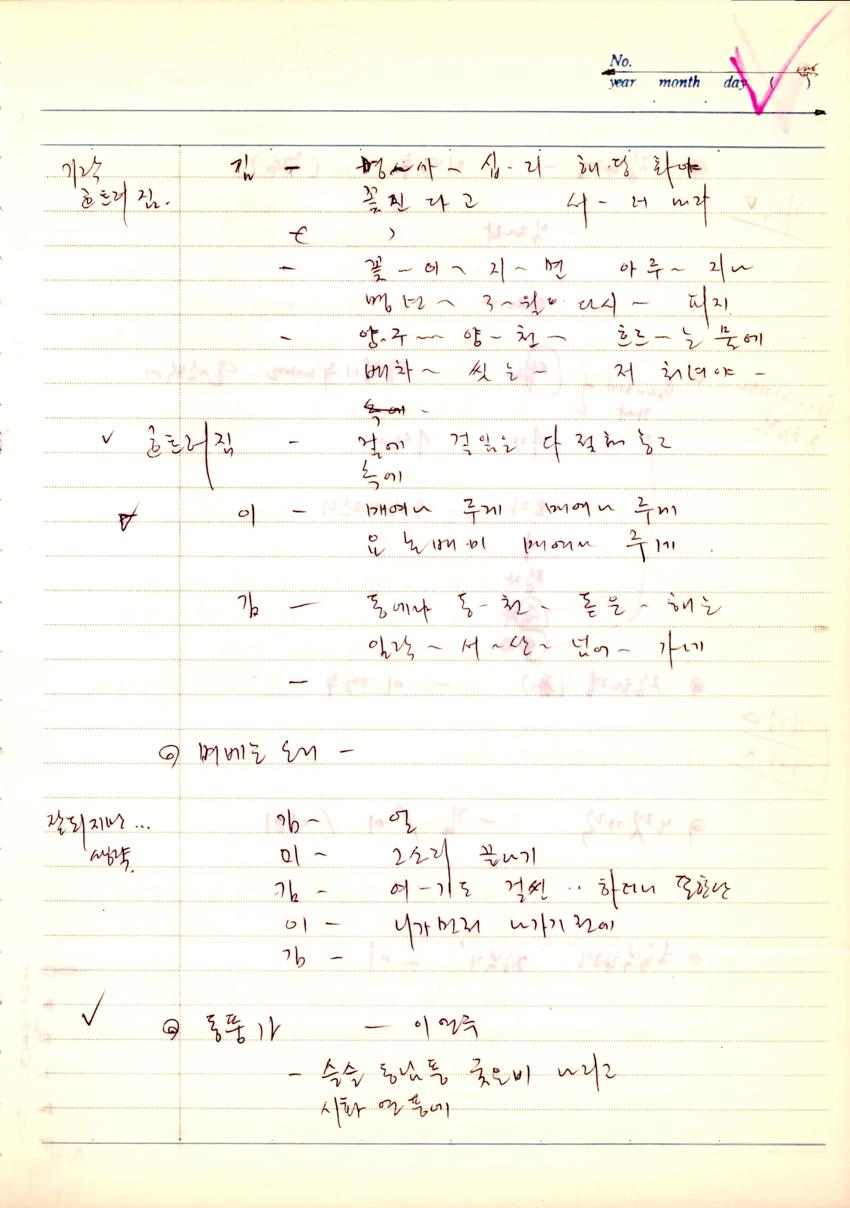 No.
year month day ( )
가락 김 - 명~사~ 십·리 해당 화야
흐트러짐. 꽃진 다고 서-러 마라
-
- 꽃-이~ 지~면 아주~ 지나
명년~ 3~월에 다시~ 피지
- 양·주~~ 양~천~ 흐르-는 물에
배차~ 씻는- 저 처녀야 -
속에 -
✓ 흐트러짐 - 겉에 겉잎은 다 젖혀 놓고
속에
이 - 매여나 주게 매여나 주게
요 논배미 매여나 주게
김 - 동에나 동·천- 돋은- 해는
일락~ 서~산~ 넘어~ 가네
-
벼베는 소리 -
잘되지만... 김- 얼
생략. 이~ 그소리 끝나기
김- 여-기도 걸씬 .. 하더니 또한단
이 - 니가먼저 나가기전에
김 -
✓ 동풍가 - 이
- 슬슬 동남풍 궂은비 나리고
시화 연풍에